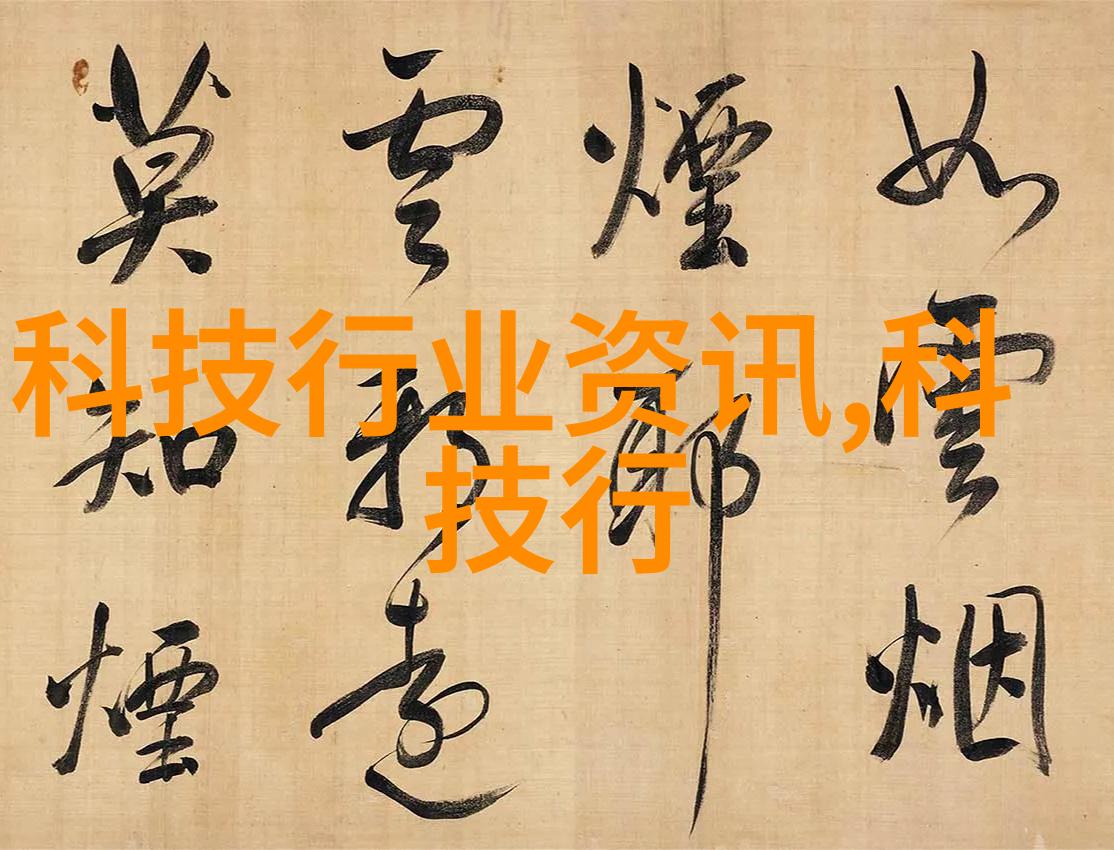 科技行业资讯,科
技行
如雲烟
煙耶
雲邪遠
莫知煙